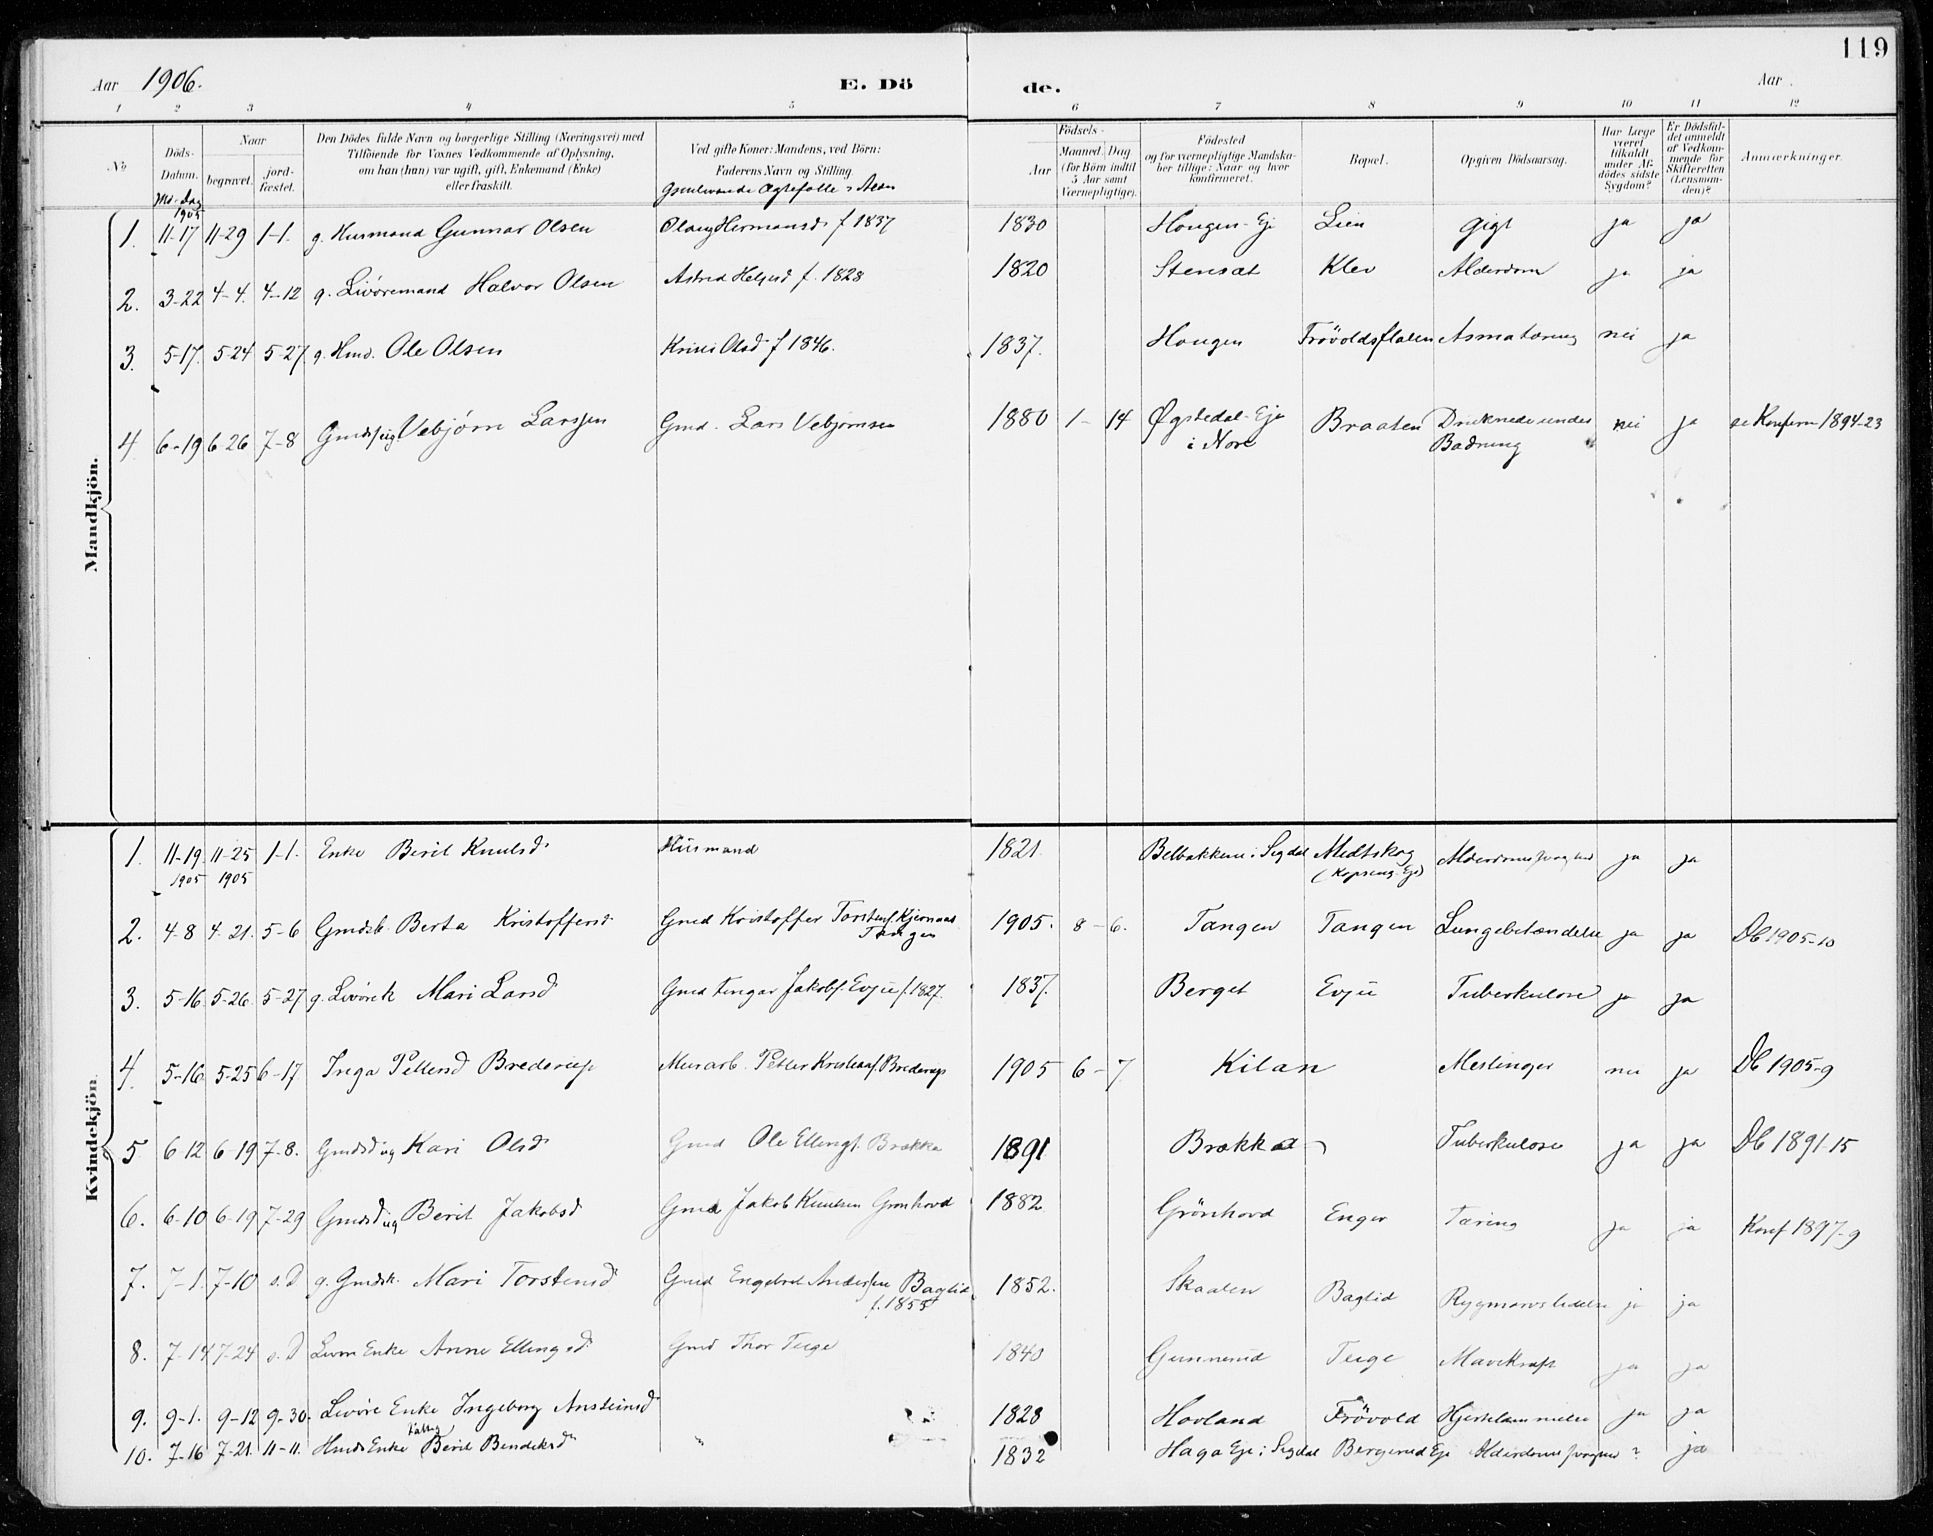 119
Aar 1906. E. Dö de. Aar
1 2 3 4 5 6 7 8 9 10 11 12
No
Döds-Datum.
Naar
begravet.
jord-fæstet.
Den Dödes fulde Navn og borgerlige Stilling (Næringsvei) med
Tilföiende for Voxnes Vedkommende af Oplysning,
om han (hun) var ugift, gift, Enkemand (Enke)
eller fraskilt.
Ved gifte Koner: Mandens, ved Börn:
Faderens Navn og Stilling
Gjenlevende Ægtefælle
Födsels-
Aar
Maaned. Dag
(for Börn indtil
5 Aar samt
Værnepligtige).
Födested
og for værnepligtige Mandska-
ber tillige: Naar og hvor
konfirmeret.
Bopæl.
Opgiven Dödsaarsag.
Har Læge
været
tilkaldt
under Af-
dödes sidste
Sygdom?
Er Dödsfal-
det anmeldt
af Vedkom-
mende for
Skifteretten
(Lensman-
den)?
Anmærkninger.
Md. Dag
1905
Mandkjön.
1. 11-17 11-29 1-1. g. Husmand Gunnar Olsen Olaug Hermansd f 1837 1830 Hougen-Eje Lien Gigt ja ja
2. 3-22 4-4. 4-12 g. Livöremand Halvor Olsen Astrid Helgesd f. 1828 1820 Stensæt Klev Alderdom ja ja
3. 5-17. 5-24 5-27 g. Hmd. Ole Olsen Kristi Olsd f 1846. 1837. Hougen Trövoldsflaten Asma tæring nei ja
4 6-19 6-26 7-8 Gmds/ug Vebjørn Larssen Gmd. Lars Vebjørnsen 1880 1-14 Øgstedal-Eje Braaten Druknede under nei ja se Konfirm 1894-23
i Nore Badning
Kvindekjön.
1. 11-19 11-25 1-1. Enke Berit Knutsd Husmand 1821. Belbakken i Sigdal Medtskog Alderdoms ja ja
1905 1905
2. 4-8 4-21. 5-6 Gmdsb. Berta Kristoffersd Gmd Kristoffer Torstens. Kjernaas 1905. 8-6. Tangen Tangen Lungebetændelse ja ja Db 1905-10
Tangen
3. 5-16 5-26 5-27 g. Livörek Mari Larsd Gmd Jakobs. Evju f. 1827. 1837. Berget Evju Tuberkulose ja ja
4. 5-16 5-25 6-17 Inga Pettersd Brederup Murarb. Petter Brederup 1905 6-7. Kilan Meslinger nei ja Db 1905-9
5 6-12 6-19 7-8. Gmdsd ug Kari Olsd Gmd Ole Ellings. Brækka 1891 Brækka Tuberkulose ja ja Db 1891-15
6. 6-10 6-19 7-29 Gmdsd ug Berit Jakobsd Gmd Jakob Knutsen Grønhovd 1882 Grönhovd Enger Tæring ja ja Konf 1897-9
7. 7-1. 7-10 s. D g. Gmdsk. Mari Torstensd Gmd Engebret Anderssen Baglid 1852. Skaalen Baglid Rygmarvslidelse ja ja
f. 1855
8. 7-14 7-24 s. D Livör Enke Anne Ellingsd Gmd Thor Teige 1840 Gunnerud Teige Mavekræft ja ja
9. 9-1. 9-12 9-30. Livöre Enke Ingeborg Ansteinsd " 1828 Hovland Frövold Hjertelammelse ja ja
10. 7-16 7-21. 11-11. Hmds Enke Berit Bendiksd " 1832 Haga Eje i Sigdal Bergerud Eje Alderdoms ? ja